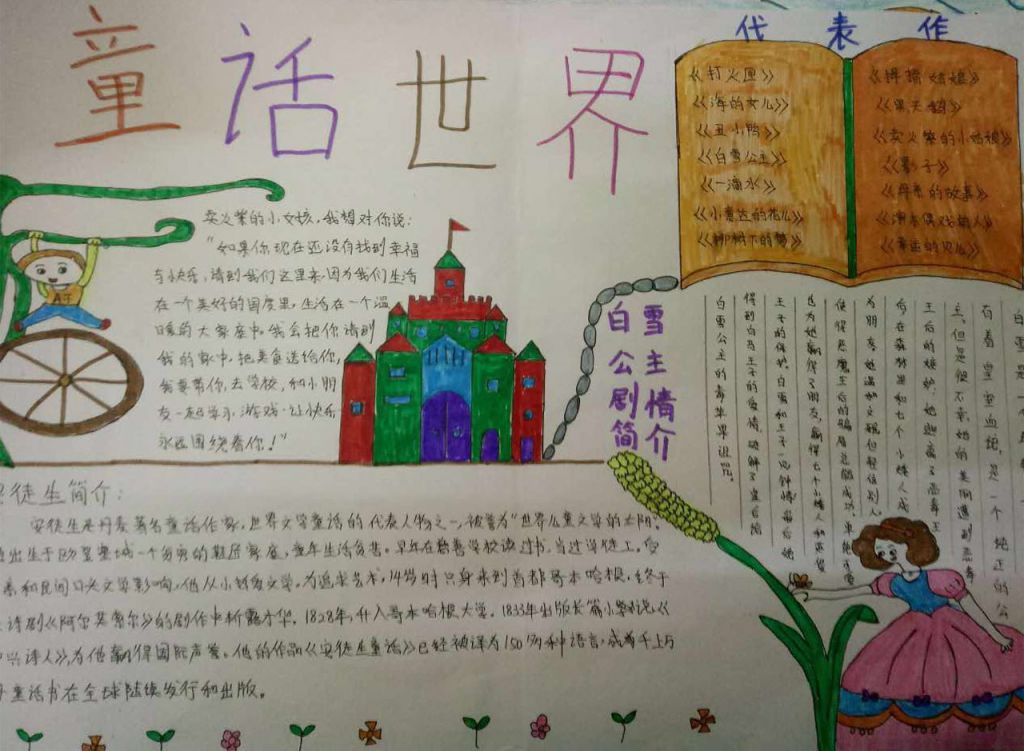 童话世界
代表作
《打火匣》
《海的女儿》
《丑小鸭》
《白雪公主》
《一滴水》
《小意达的花儿》
《柳树下的梦》
《拇指姑娘》
《野天鹅》
《卖火柴的小姑娘》
《影子》
《母亲的故事》
《演木偶戏的人》
《幸运的贝儿》
卖火柴的小女孩，我想对你说：
"如果你现在还没有找到幸福
与快乐，请到我们这里来，因为我们生活
在一个美好的国度里，生活在一个温
暖的大家庭中，我会把你请到
我的家中，把美食送给你，
我要带你，去学校，和小朋
友一起学习、游戏，让快乐
永远围绕着你！"
白雪公主剧情简介
有着皇室血统，是一个纯正的公
主，但是很不幸，她的美丽遭到恶毒
王后的嫉妒，她逃离了恶毒王
后在森林里和七个小矮人成
为朋友，她温如文靓包容别人
使得恶魔王后的骗局总能成功，单纯可爱
也为她赢得了朋友，赢得七个小矮人和
王子的保护。白雪和王子一见钟情，最后她
得到白马王子的爱情，破解了皇后陷
白雪公主的毒苹果诅咒。
徒生简介：
安徒生是丹麦著名童话作家，世界文学童话的代表人物之一，被誉为"世界儿童文学的太阳"。
出生于欧登塞城一个贫穷的鞋匠家庭，童年生活贫苦。早年在慈善学校读过书，当过学徒工。受
亲和民间口头文学影响，他从小钟爱文学。为追求艺术，14岁时只身来到首都哥本哈根，终于
诗剧《阿尔芙索尔》的剧作中崭露才华。1828年，升入哥本哈根大学。1833年出版长篇小说，《
兴诗人》，为他赢得国际声誉。他的作品《安徒生童话》已经被译为150多种语言，成千上万
童话书在全球陆续发行和出版。